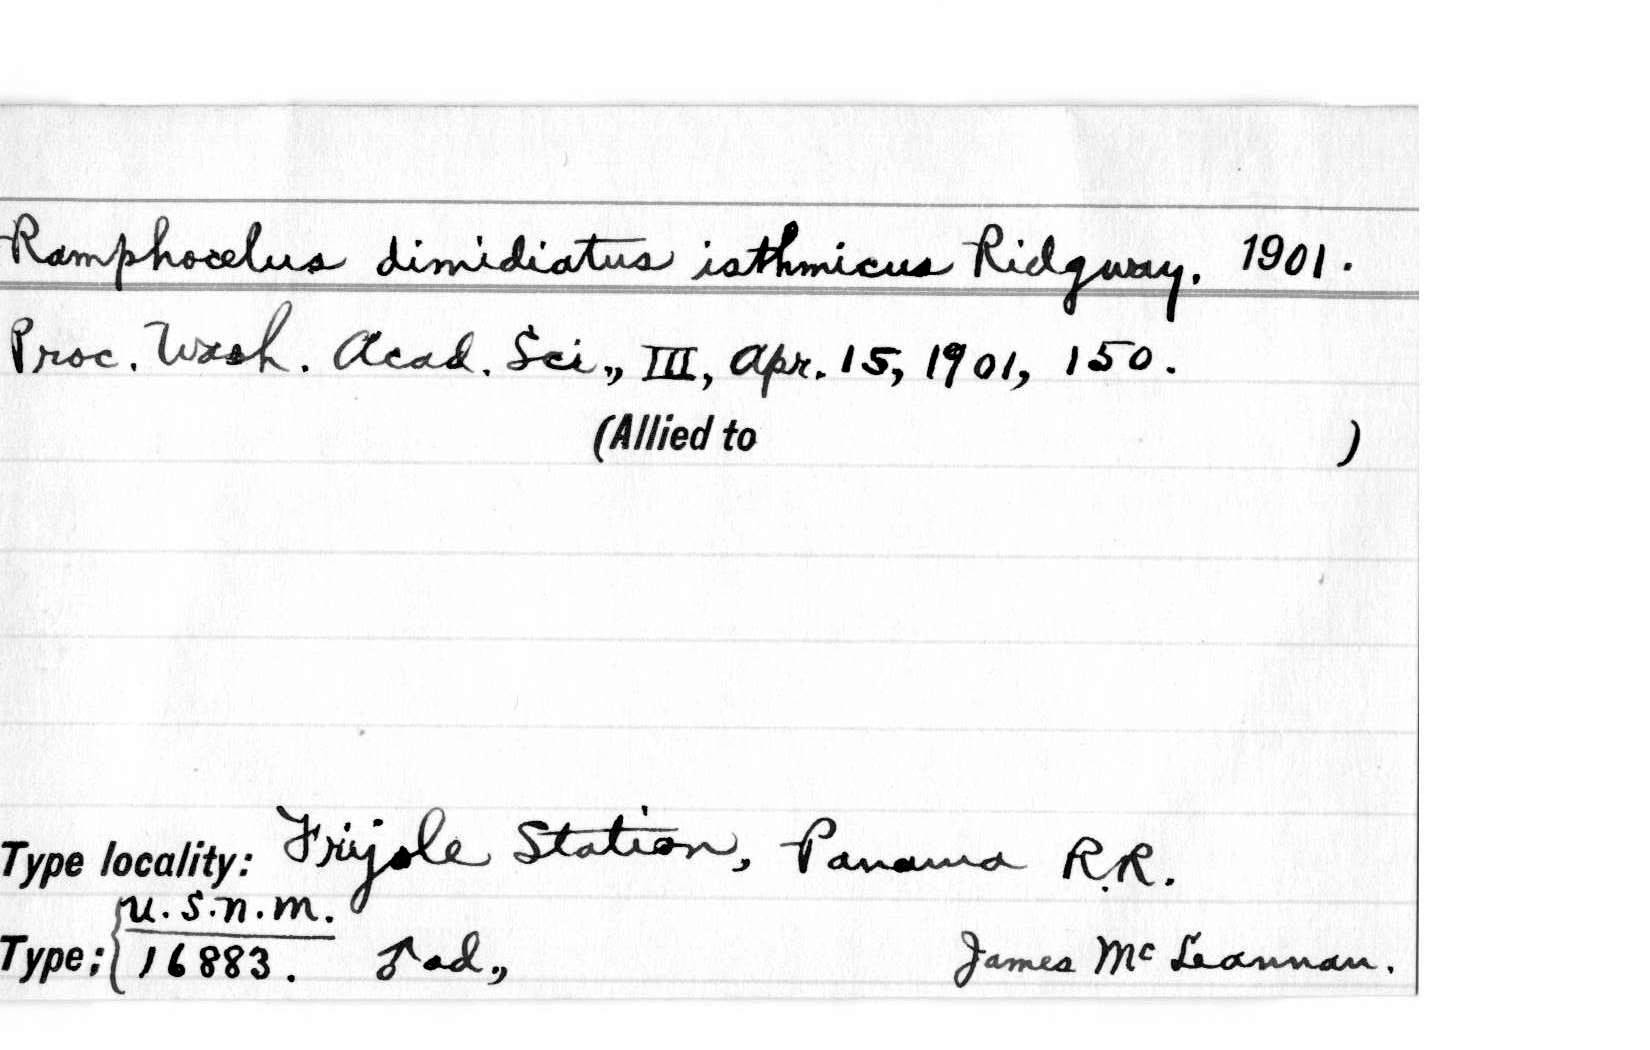 Ramphocelus dimidiatus isthmicus Ridgway. 1901.
Proc. Wash. Acad. Sci., III, Apr. 15, 1901, 150.
(Allied to )
Type locality: Frijole Station, Panama R.R.
U.S.N.M.
Type: 16883. ♂ ad., James McLeannan.